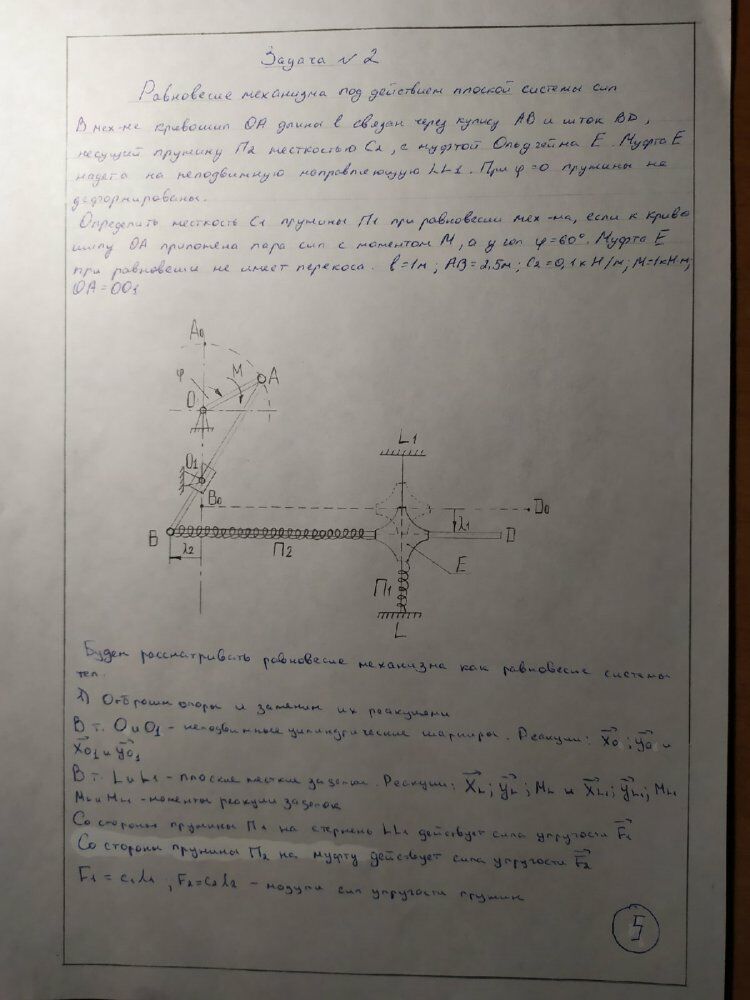 Задача №2
Равновесие механизма под действием плоской системы сил
В мех-ме кривошип OA длины l связан через кулису AB и шток BD,
несущий пружину П2 жесткостью C2, с муфтой Ольдгейма E. Муфта E
надета на неподвижную направляющую LL1. При φ=0 пружины не
деформированы.
Определить жесткость C1 пружины П1 при равновесии мех-ма, если к криво
шипу OA приложена пара сил с моментом M, а угол φ=60°. Муфта E
при равновесии не имеет перекоса. l=1м; AB=2,5м; C2=0,1кН/м; M=1кНм;
OA=OO1
A0
φ
M
A
O
L1
O1
B0
D0
λ1
B
D
λ2
П2
E
П1
L
Будем рассматривать равновесие механизма как равновесие системы
тел.
1) Отбросим опоры и заменим их реакциями
В т. O и O1 - неподвижные цилиндрические шарниры. Реакции: X0; Y0 и
X01 и Y01
В т. L и L1 - плоские жесткие заделки. Реакции: XL; YL; ML и XL1; YL1; ML1
ML и ML1 - моменты реакции заделок
Со стороны пружины П1 на стержень LL1 действует сила упругости F1
Со стороны пружины П2 на муфту действует сила упругости F2
F1 = c1λ1 ; F2=c2λ2 - модули сил упругости пружин
5